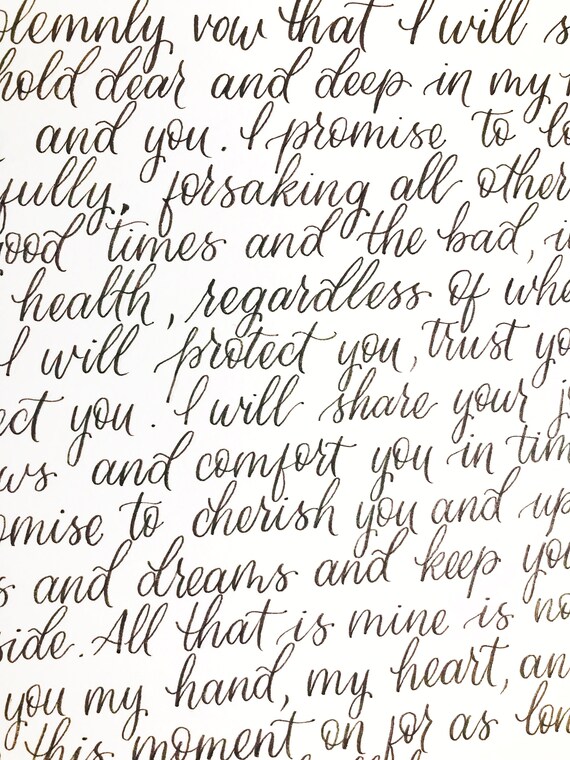 olemnly vow that I will s
hold dear and deep in my
and you. I promise to lo
fully, forsaking all other
good times and the bad, i
health, regardless of whe
I will protect you, trust yo
ect you. I will share your j
ws and comfort you in tim
omise to cherish you and up
s and dreams and keep you
side. All that is mine is no
you my hand, my heart, an
this moment on for as lon